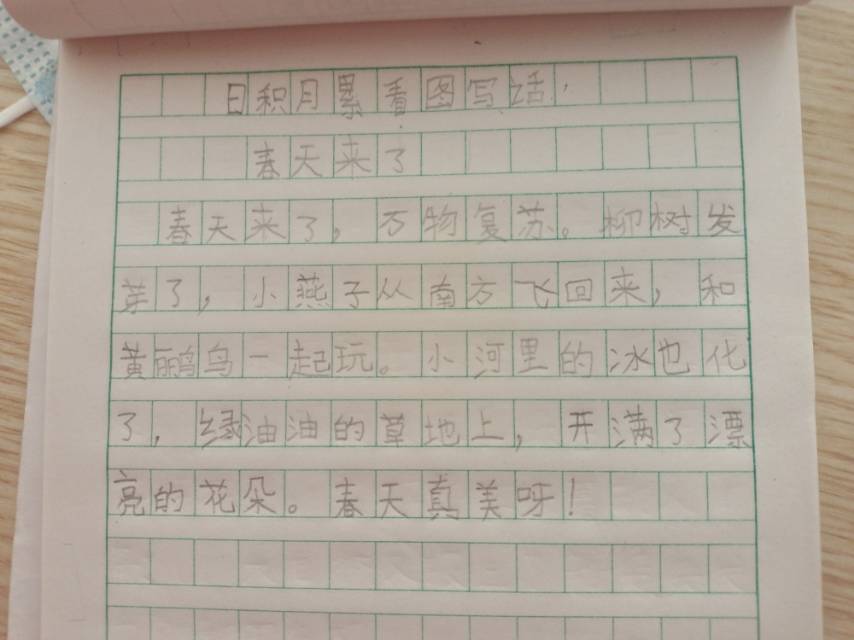 日积月累看图写话
春天来了
春天来了，万物复苏。柳树发
芽了，小燕子从南方飞回来，和
黄鹂鸟一起玩。小河里的冰也化
了，绿油油的草地上，开满了漂
亮的花朵。春天真美呀！